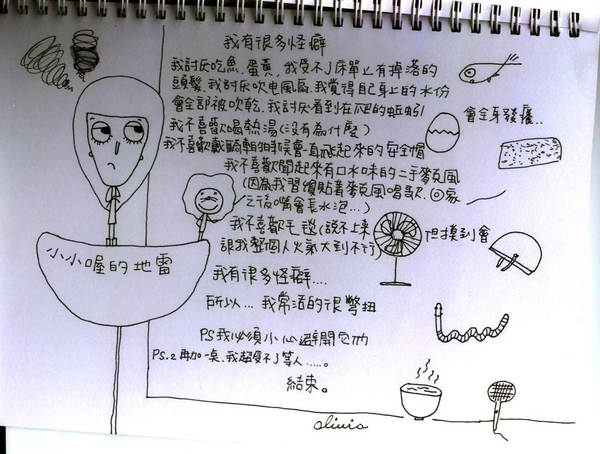 我有很多怪癖
我討厌吃魚、蛋黃、我受不了床單上有掉落的
頭髮、我討厌吹电風扇、我覺得自己身上的水份
會全部被吹乾、我討厌看到在爬的蚯蚓
會全身發癢..
我不喜歡喝熱湯(没有為什麼)
我不喜歡戴騎車的時候會一直飛起來的安全帽
我不喜歡聞起來有口水味的二手麥克風
(因為我習慣貼著麥克風唱歌、回家
之後嘴會長水泡...)
我不喜歡毛毯(說不上來
但摸到會
讓我整個人火氣大到不行)
小小喔的地雷
我有很多怪癖....
所以... 我常活的很彆扭
PS我必須小心避開它們
PS.2 再加一点、我超受不了等人.....。
結束。
olivia